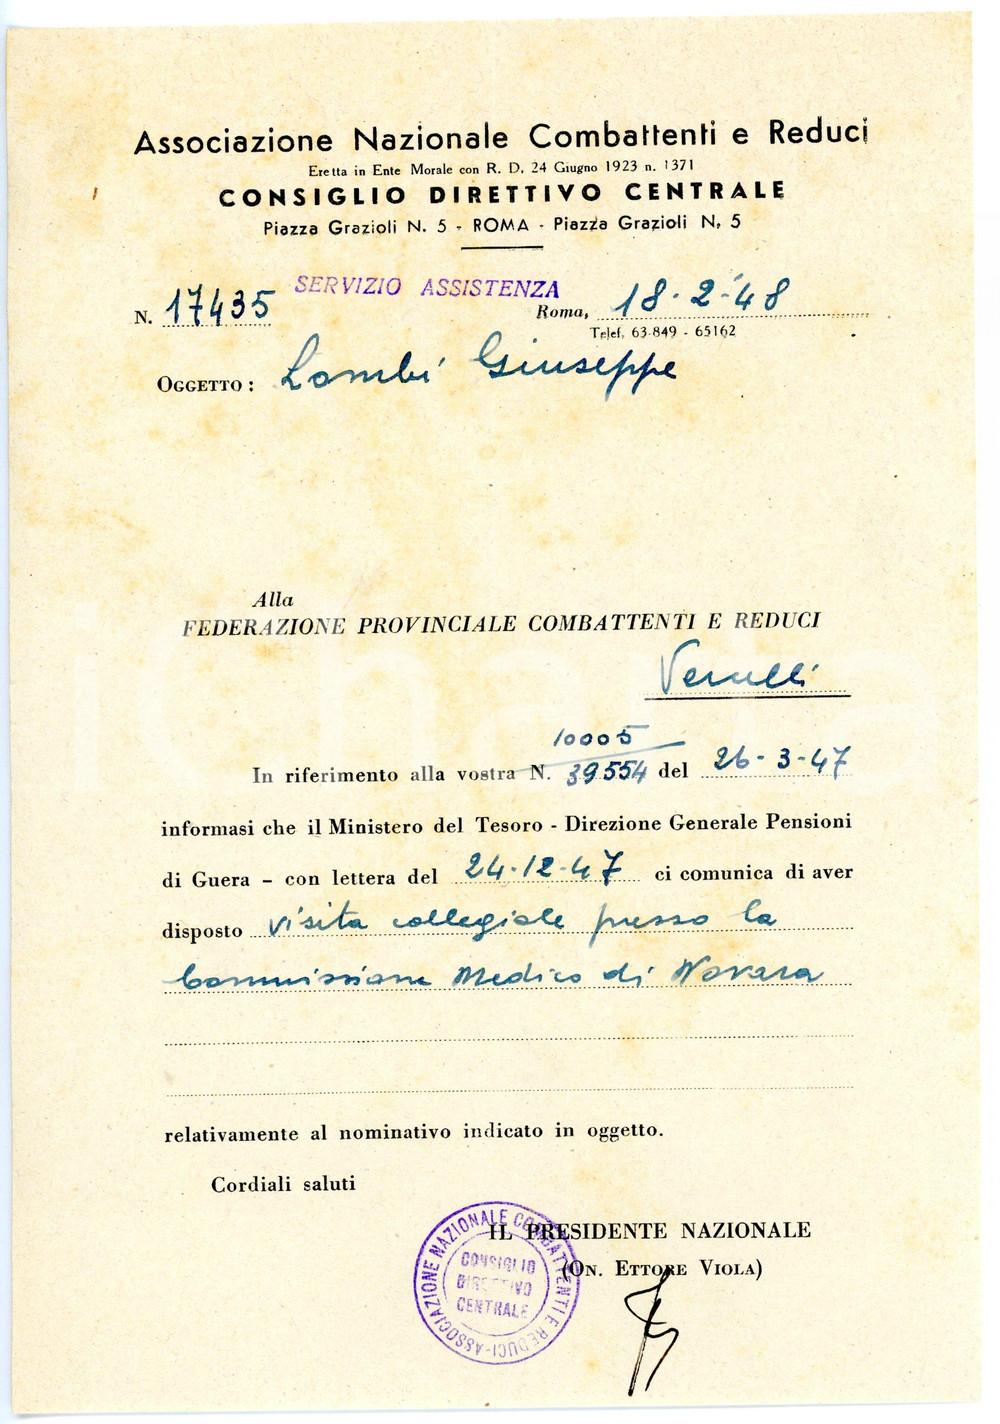 Associazione Nazionale Combattenti e Reduci
Eretta in Ente Morale con R. D. 24 Giugno 1923 n. 1371
CONSIGLIO DIRETTIVO CENTRALE
Piazza Grazioli N. 5 - ROMA - Piazza Grazioli N. 5
SERVIZIO ASSISTENZA
N. 17435 Roma, 18-2-48
Telef. 63-849 - 65162
OGGETTO: Lombi Giuseppe
Alla
FEDERAZIONE PROVINCIALE COMBATTENTI E REDUCI
Vercelli
10005
In riferimento alla vostra N. 39554 del 26-3-47
informasi che il Ministero del Tesoro - Direzione Generale Pensioni
di Guera - con lettera del 24-12-47 ci comunica di aver
disposto visita collegiale presso la
Commissione Medica di Novara
relativamente al nominativo indicato in oggetto.
Cordiali saluti
IL PRESIDENTE NAZIONALE
(ON. ETTORE VIOLA)
ASSOCIAZIONE NAZIONALE COMBATTENTI E REDUCI
CONSIGLIO
DIRETTIVO
CENTRALE